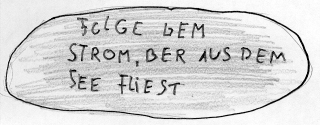 FOLGE DEM
STROM, DER AUS DEM
SEE FLIEST